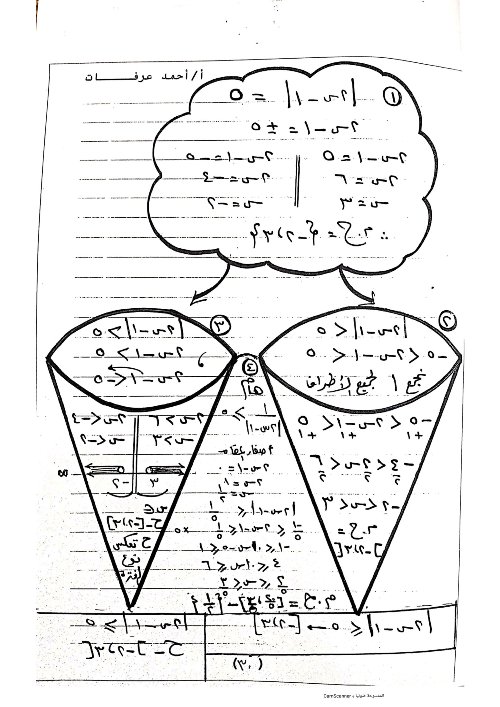 أ/أحمد عرفات
① |٢س-١| = ٥
٢س-١ = ± ٥
٢س-١ = ٥
٢س = ٦
س = ٣
٢س-١ = -٥
٢س = -٤
س = -٢
∴ م.ح = {-٢، ٣}
②
|٢س-١| < ٥
-٥ < ٢س-١ < ٥
نجمع ١ لجميع الأطراف
-٥ < ٢س-١ < ٥
+١ +١ +١
-٤/٢ < ٢س/٢ < ٦/٢
-٢ < س < ٣
م.ح =
]-٢، ٣[
③
|٢س-١| > ٥
٢س-١ > ٥
٢س-١ < -٥
٢س > ٦
س > ٣
٢س < -٤
س < -٢
∞
٣
-٢
س ∈
ح-[-٢، ٣]
ح تعكس
نوع
الفترة
④
هام
١/|٢س-١| ≥ ٥
أصفار المقام
٢س-١ = ٠
٢س = ١
س = ١/٢
|٢س-١| ≤ ١/٥
-١/٥ ≤ ٢س-١ ≤ ١/٥ ×٥
-١ ≤ ١٠س-٥ ≤ ١
٤ ≤ ١٠س ≤ ٦
٢/٥ ≤ س ≤ ٣/٥
م.ح = [٢/٥، ٣/٥] - {١/٢}
|٢س-١| ≤ ٥ ← [-٢، ٣]
|٢س-١| ≥ ٥
ح - ]-٢، ٣[
(٣٠)
الممسوحة ضوئيا بـ CamScanner